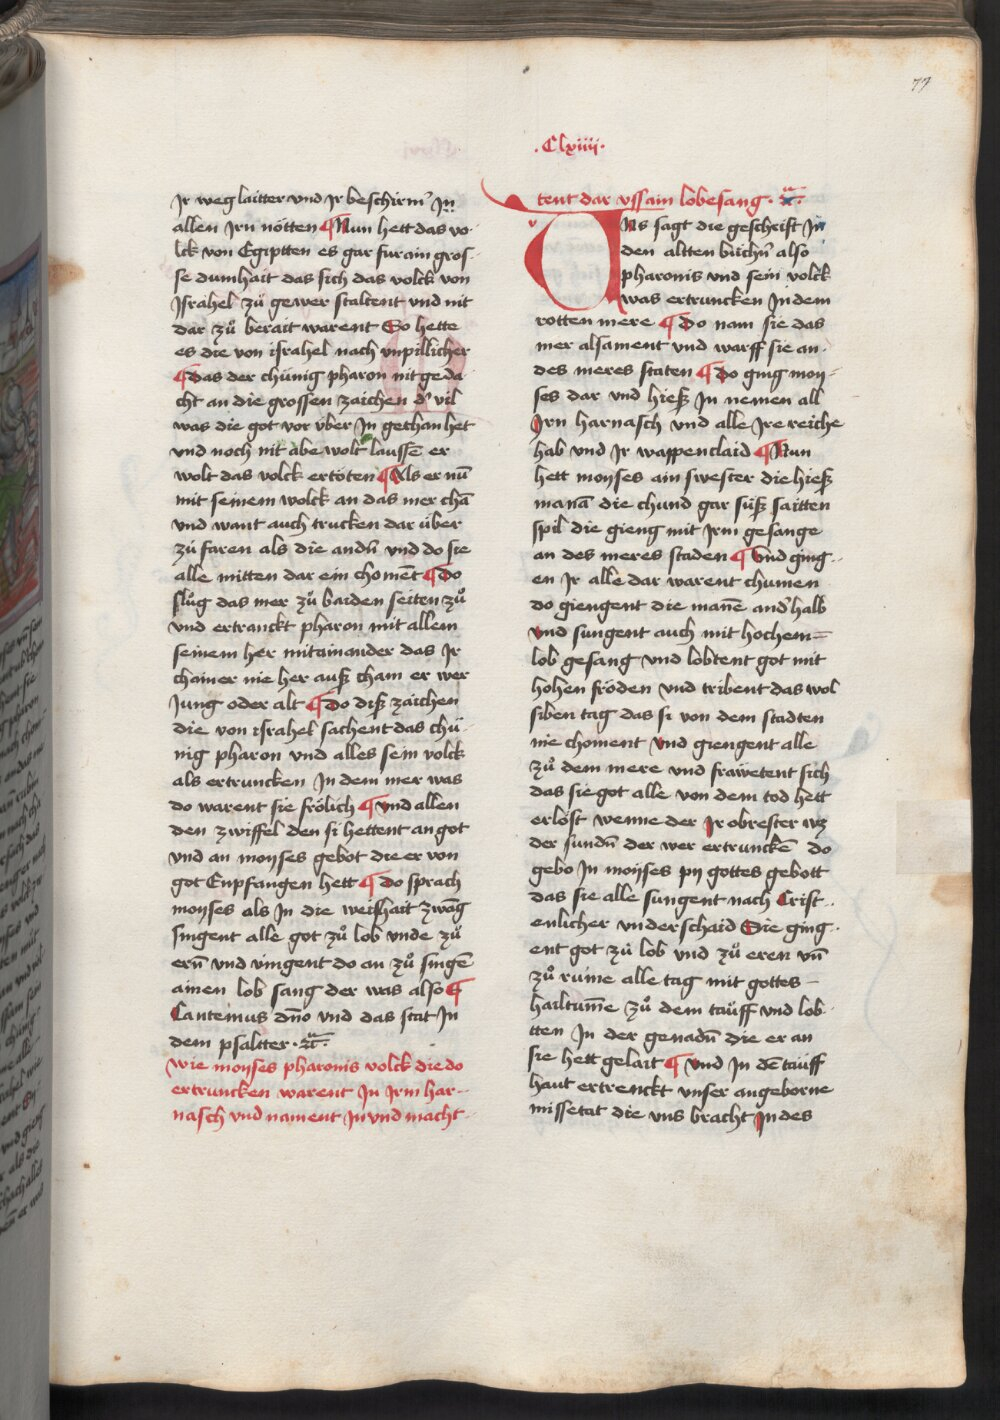 77
.Clxiiii.
Jr weg laitter und Jr beschirm͛ Jn
allen Jrn nötten ¶ Nun hett das vo-
lck von Egiptten es gar fur ain gros-
se dumhait das sich das volck von
Jsrahel zů gewer staltent und nit
dar zů berait warent So hette
es die von israhel nach unpillicher
¶ das der chünig pharon nit geda-
cht an die grossen zaichen d͛ vil
was die got vor über Jn gethan het
und noch nit abe wolt laussē er
wolt das volck ertöten ¶ Als er nū
mit seinem volck an das mer chā
und want auch trucken dar über
zů faren als die andn̄ und do sie
alle mitten dar ein chomēt ¶ do
slůg das mer zů baiden seiten zů
und ertranckt pharon mit allem
seinem her mitainander das Jr
chainer nie her auß cham er wer
Jung oder alt ¶ do diß zaichen
die von israhel sachent das chü-
nig pharon und alles sein volck
als ertruncken Jn dem mer was
do warent sie frölich ¶ und allen
den zwiffel den si hettent an got
und an moyses gebot die er von
got Enpfangen hett ¶ do sprach
moyses als Jn die weishait zwāg
singent alle got zů lob unde zů
ern̄ und vingent do an zů singē
ainen lob sang der was also ¶
Cantemus dn̄o und das stat Jn
dem psaltter
wie moyses pharonis volck die do
ertruncken warent Jn Jrm har-
nasch und nament Jn und macht-
tent dar uss ain lobesang
UNs sagt die geschrift Jn
den altten büchn̄ also
pharonis und sein volck
was ertruncken Jn dem
rotten mere ¶ do nam sie das
mer alsament und warff sie an
des meres staten ¶ do ging moy-
ses dar und hieß Jn nemen all
Jrn harnasch und alle Jre reiche
hab und Jr wappenclaid ¶ Nun
hett moyses ain swester die hieß
manā die chund gar süß saitten
spil die gieng mit Jrm gesange
an des meres staden ¶ und ging-
en Jr alle dar warent chumen
do giengent die manē and͛halb
und sungent auch mit hochem
lob gesang und lobtent got mit
hohen fröden und tribent das wol
siben tag das si von dem stadten
nie choment und giengent alle
zů dem mere und fräwetent sich
das sie got alle von dem tod hett
erlöst wenne der Jr obrester wz
der sundn̄ der wer ertrunckē do
gebo Jn moyses py gottes gebott
das sie alle sungent nach Crist-
enlicher underschaid Die ging-
ent got zů lob und zů eren un̄
zů rüme alle tag mit gottes
hailtum̄e zů dem tauff und lob-
tten Jn der genadn̄ die er an
sie hett gelait ¶ und Jn dē tauff
haut ertrenckt unser angeborne
missetat die uns bracht Jn des